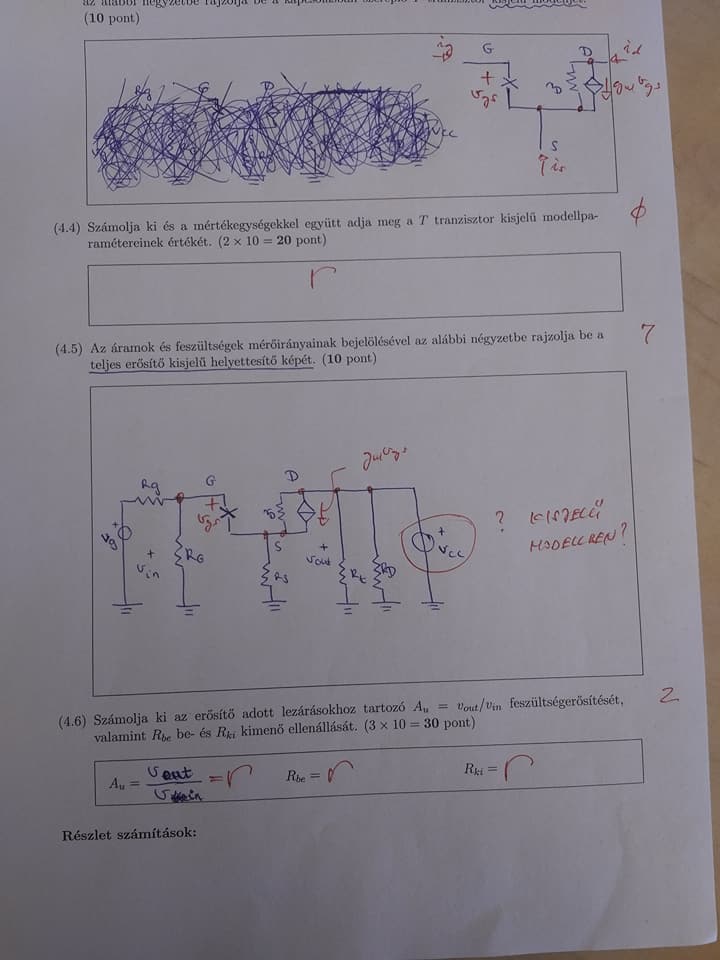 az alábbi négyzetbe rajzolja be a kapcsolásban szereplő T tranzisztor kisjelű modelljét.
(10 pont)
ig G D id
+
vgs rD gm vgs
S
is
Rg G D
Vcc
(4.4) Számolja ki és a mértékegységekkel együtt adja meg a T tranzisztor kisjelű modellpa-
ramétereinek értékét. (2 × 10 = 20 pont)
(4.5) Az áramok és feszültségek mérőirányainak bejelölésével az alábbi négyzetbe rajzolja be a
teljes erősítő kisjelű helyettesítő képét. (10 pont)
7
gm vgs
Rg G D
+ vgs rD
+ vg + vin RG S RS + vout Rt RD + vcc
? KISJELŰ
MODELLBEN?
(4.6) Számolja ki az erősítő adott lezárásokhoz tartozó Au = vout/vin feszültségerősítését,
valamint Rbe be- és Rki kimenő ellenállását. (3 × 10 = 30 pont)
2
Au = vout/vin = Rbe = Rki =
Részlet számítások: